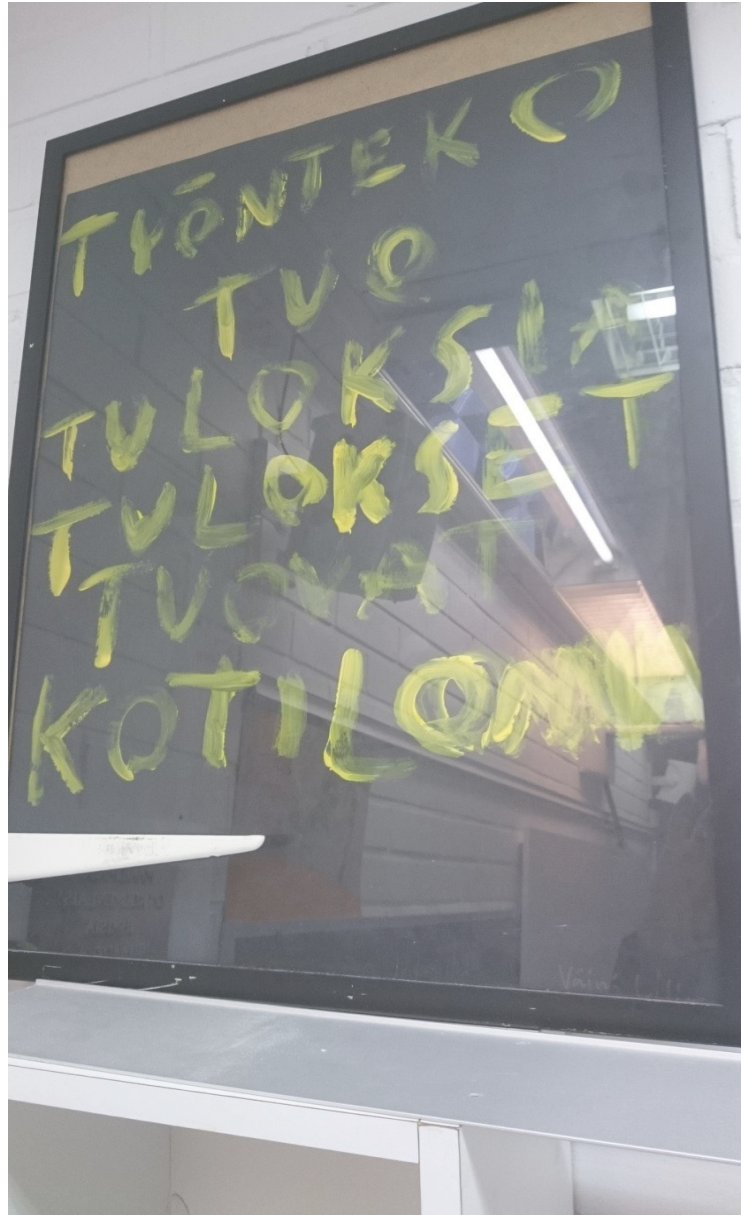 TYÖNTEKO
TUO
TULOKSIA
TULOKSET
TUOVAT
Väinö